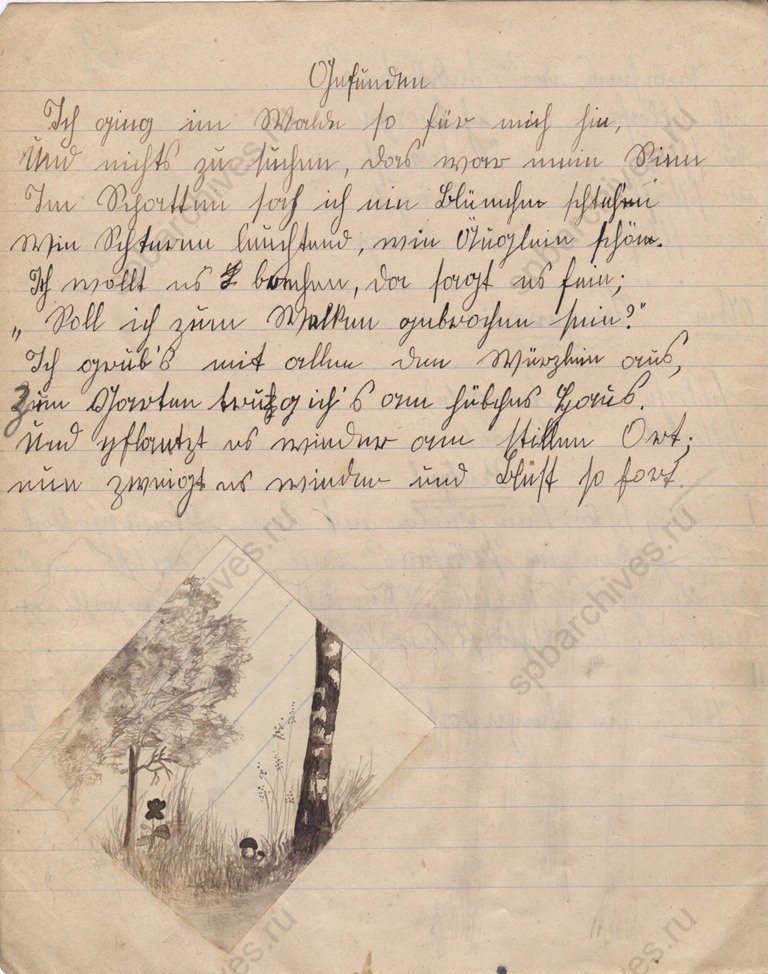 Gefunden
Ich ging im Walde so für mich hin,
Und nichts zu suchen, das war mein Sinn
Im Schatten sah ich ein Blümchen schtehn
Wie Schterne leuchtend, wie Äuglein schön.
Ich wollt es brechen, da sagt es fein;
„Soll ich zum Welken gebrochen sein?"
Ich grub's mit allen den Würzlein aus,
Zum Garten trug ich's am hübches Haus.
Und pflantzt es wieder am stillen Ort;
nun zweigt es wieder und Blüst so fort.
spbarchives.ru